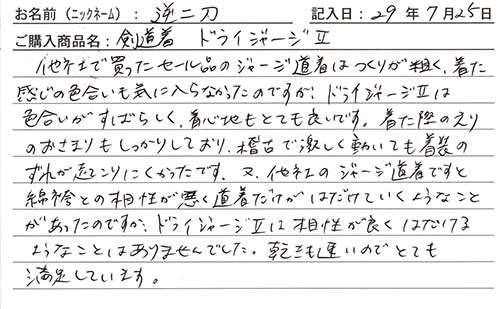 お名前（ニックネーム）： 逆二刀 記入日：29年7月25日
ご購入商品名：剣道着 ドライジャージⅡ
他社で買ったセール品のジャージ道着はつくりが粗く、着た
感じの色合いも気に入らなかったのですが、ドライジャージⅡは
色合いがすばらしく、着心地もとても良いです。着た際のえり
のおさまりもしっかりしており、稽古で激しく動いても着装の
ずれが起こりにくかったです。又、他社のジャージ道着ですと
綿袴との相性が悪く道着だけがはだけていくようなこと
があったのですが、ドライジャージⅡは相性が良くはだける
ようなことはありませんでした。乾きも速いのでとても
満足しています。